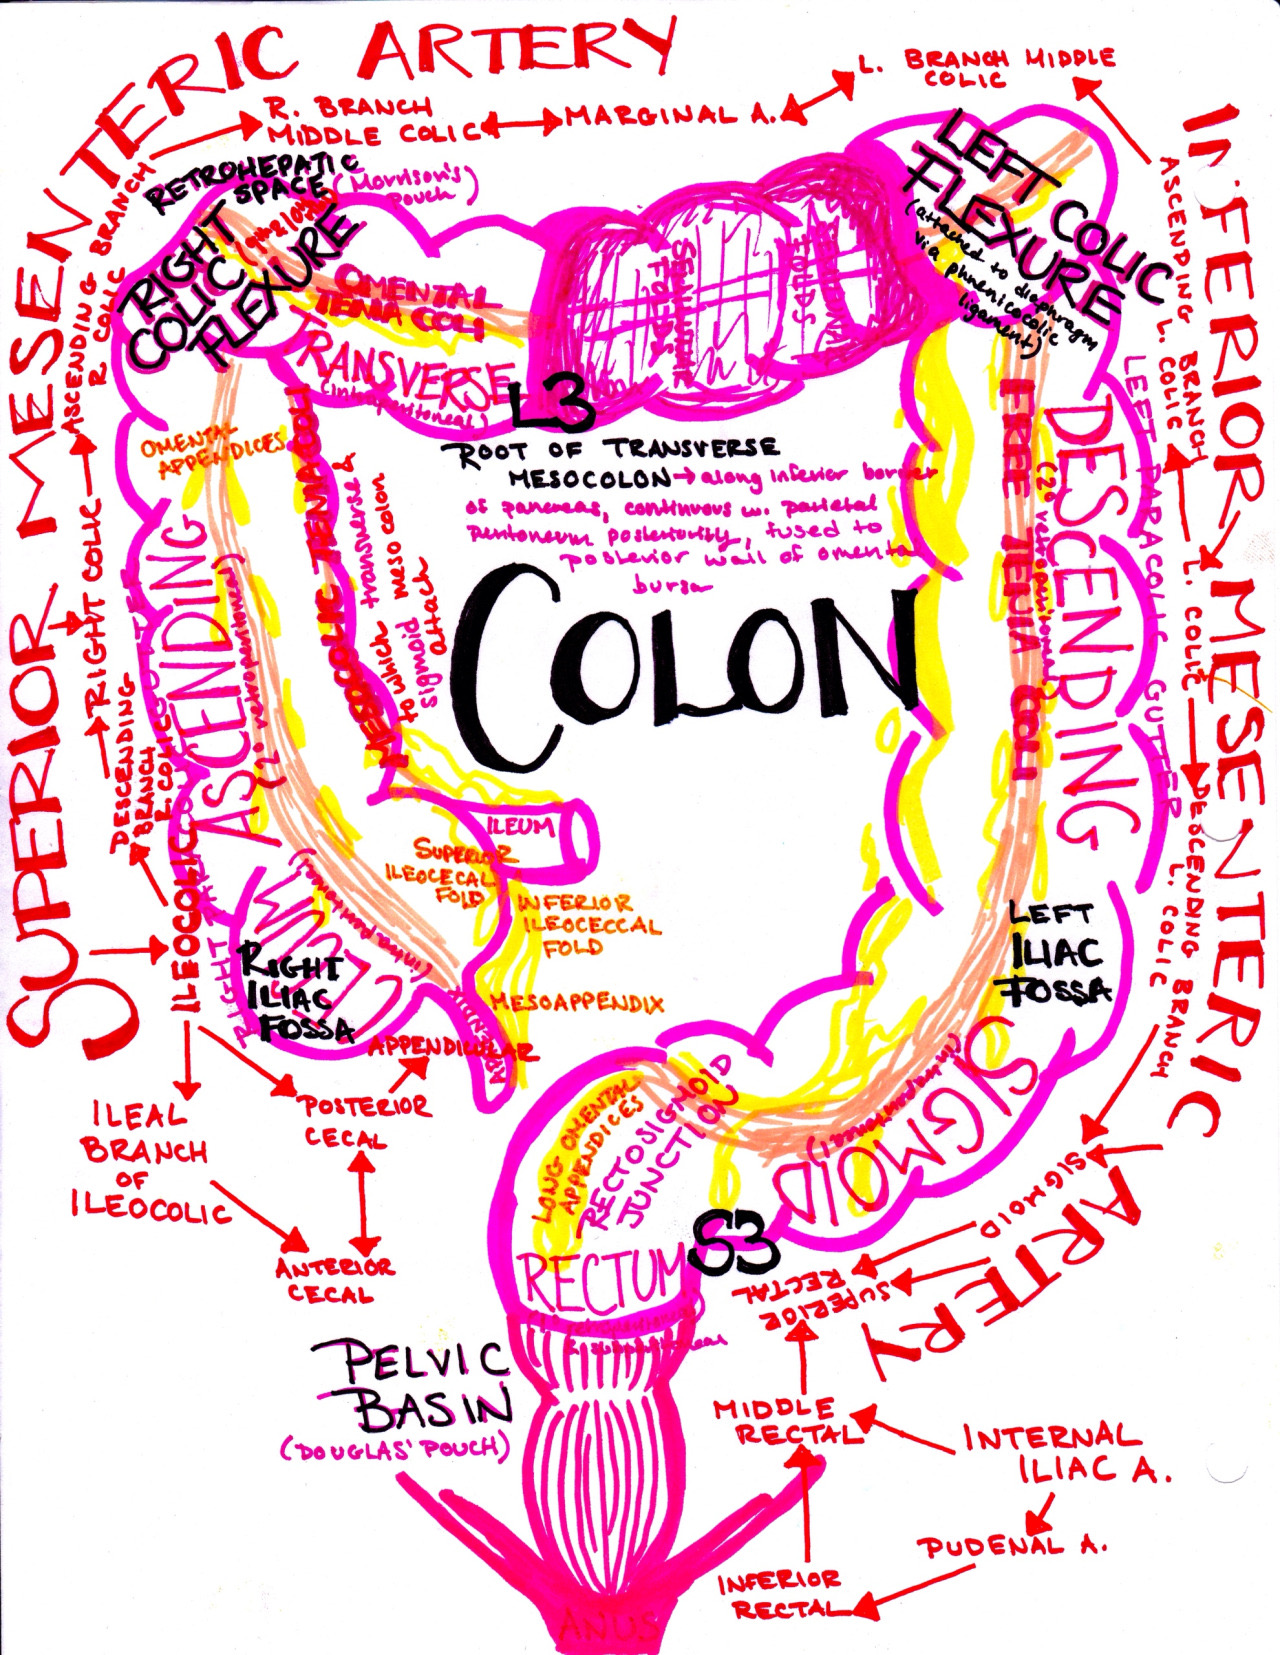 SUPERIOR MESENTERIC ARTERY
L. BRANCH MIDDLE
COLIC
R. BRANCH
MIDDLE COLIC
MARGINAL A.
RETROHEPATIC
SPACE
(Morrison's
Pouch)
ASCENDING BRANCH
R COLIC
RIGHT
COLIC
FLEXURE
OMENTAL
TENIA COLI
TRANSVERSE
(intraperitoneal)
SEMILUNAR
FOLDS
LEFT COLIC
FLEXURE
(attached to diaphragm
via phrenicocolic
ligament)
INFERIOR MESENTERIC ARTERY
ASCENDING BRANCH
L. COLIC
L3
ROOT OF TRANSVERSE
MESOCOLON → along inferior border
of pancreas, continuous w. parietal
peritoneum posteriorly, fused to
posterior wall of omental
bursa
COLON
OMENTAL
APPENDICES
MESOCOLIC TENIA COLI
to which transverse &
sigmoid meso colon
attach
ASCENDING
(2° retroperitoneal)
RIGHT COLIC
DESCENDING
BRANCH
R. COLIC
ILEOCOLIC
FREE TENIA COLI
DESCENDING
(2° retroperitoneal)
LEFT PARACOLIC GUTTER
L. COLIC
DESCENDING BRANCH
L. COLIC
ILEUM
SUPERIOR
ILEOCECAL
FOLD
INFERIOR
ILEOCECCAL
FOLD
MESOAPPENDIX
CECUM
(intraperitoneal)
RIGHT
ILIAC
FOSSA
APPENDICULAR
LEFT
ILIAC
FOSSA
ILEAL
BRANCH
OF
ILEOCOLIC
POSTERIOR
CECAL
ANTERIOR
CECAL
LONG OMENTAL
APPENDICES
RECTOSIGMOID
JUNCTION
SIGMOID
(intraperitoneal)
SIGMOID
RECTUM
S3
SUPERIOR
RECTAL
PELVIC
BASIN
(DOUGLAS' POUCH)
MIDDLE
RECTAL
INTERNAL
ILIAC A.
PUDENAL A.
INFERIOR
RECTAL
ANUS